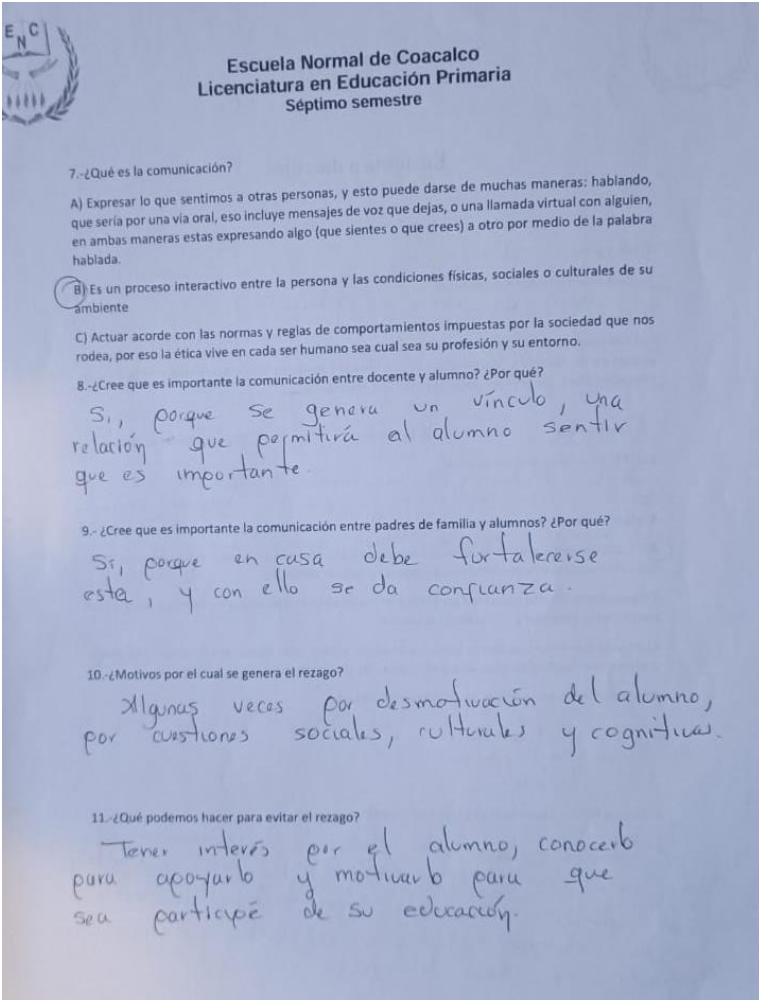 E N C
Escuela Normal de Coacalco
Licenciatura en Educación Primaria
Séptimo semestre
7.-¿Qué es la comunicación?
A) Expresar lo que sentimos a otras personas, y esto puede darse de muchas maneras: hablando,
que sería por una vía oral, eso incluye mensajes de voz que dejas, o una llamada virtual con alguien,
en ambas maneras estas expresando algo (que sientes o que crees) a otro por medio de la palabra
hablada.
B) Es un proceso interactivo entre la persona y las condiciones físicas, sociales o culturales de su
ambiente
C) Actuar acorde con las normas y reglas de comportamientos impuestas por la sociedad que nos
rodea, por eso la ética vive en cada ser humano sea cual sea su profesión y su entorno.
8.-¿Cree que es importante la comunicación entre docente y alumno? ¿Por qué?
Si, porque se genera un vínculo, una
relación que permitirá al alumno sentir
que es importante.
9.- ¿Cree que es importante la comunicación entre padres de familia y alumnos? ¿Por qué?
Si, porque en casa debe fortalecerse
esta, y con ello se da confianza.
10.-¿Motivos por el cual se genera el rezago?
Algunas veces por desmotivación del alumno,
por cuestiones sociales, culturales y cognitivas.
11.-¿Qué podemos hacer para evitar el rezago?
Tener interés por el alumno, conocerlo
para apoyarlo y motivarlo para que
sea participé de su educación.